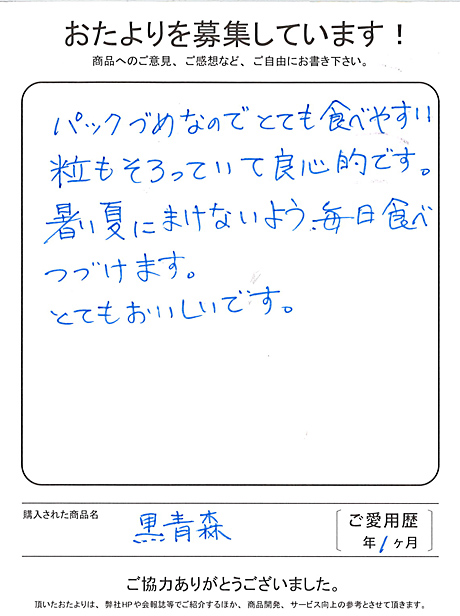 おたよりを募集しています！
商品へのご意見、ご感想など、ご自由にお書き下さい。
パックづめなのでとても食べやすい
粒もそろっていて良心的です。
暑い夏にまけないよう、毎日食べ
つづけます。
とてもおいしいです。
購入された商品名
黒青森
ご愛用歴
年1ヶ月
ご協力ありがとうございました。
頂いたおたよりは、弊社HPや会報誌等でご紹介するほか、商品開発、サービス向上の参考とさせて頂きます。